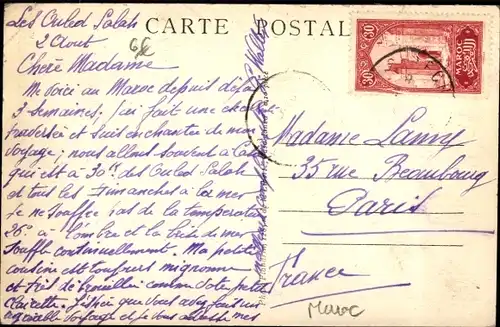 CARTE POSTALE
Les Ouled Salah
2 Aout
Chère Madame
Me voici au Maroc depuis déjà
3 semaines, j'ai fait une
traversée et suis enchantée de mon
voyage; nous allons souvent à Casa
qui est à 30 des Ouled Salah
et tous les dimanches à la mer
Je ne souffre pas de la température
26° à l'ombre et la brise de mer
souffle continuellement. Ma petite
cousine est toujours mignonne
et fait de comme votre petite
J'espère que vous avez fait un
voyage et je vous adresse mes
30
MAROC
30
Madame Lamy
35 rue Beaubourg
Paris
France
Maroc